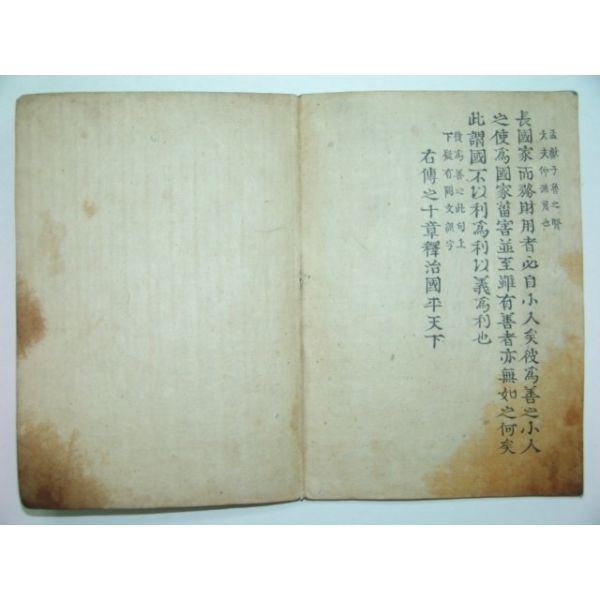 孟獻子魯之賢
大夫仲孫蔑也
長國家而務財用者必自小人矣彼爲善之小人
之使爲國家菑害並至雖有善者亦無如之何矣
此謂國不以利爲利以義爲利也
彼爲善之此句上
下疑有闕文誤字
右傳之十章釋治國平天下